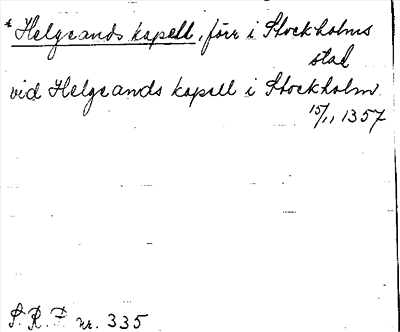 * Helgeands kapell, förr i Stockholms
stad
vid Helgeands kapell i Stockholm
15/11 1357
S. R. P. nr. 335